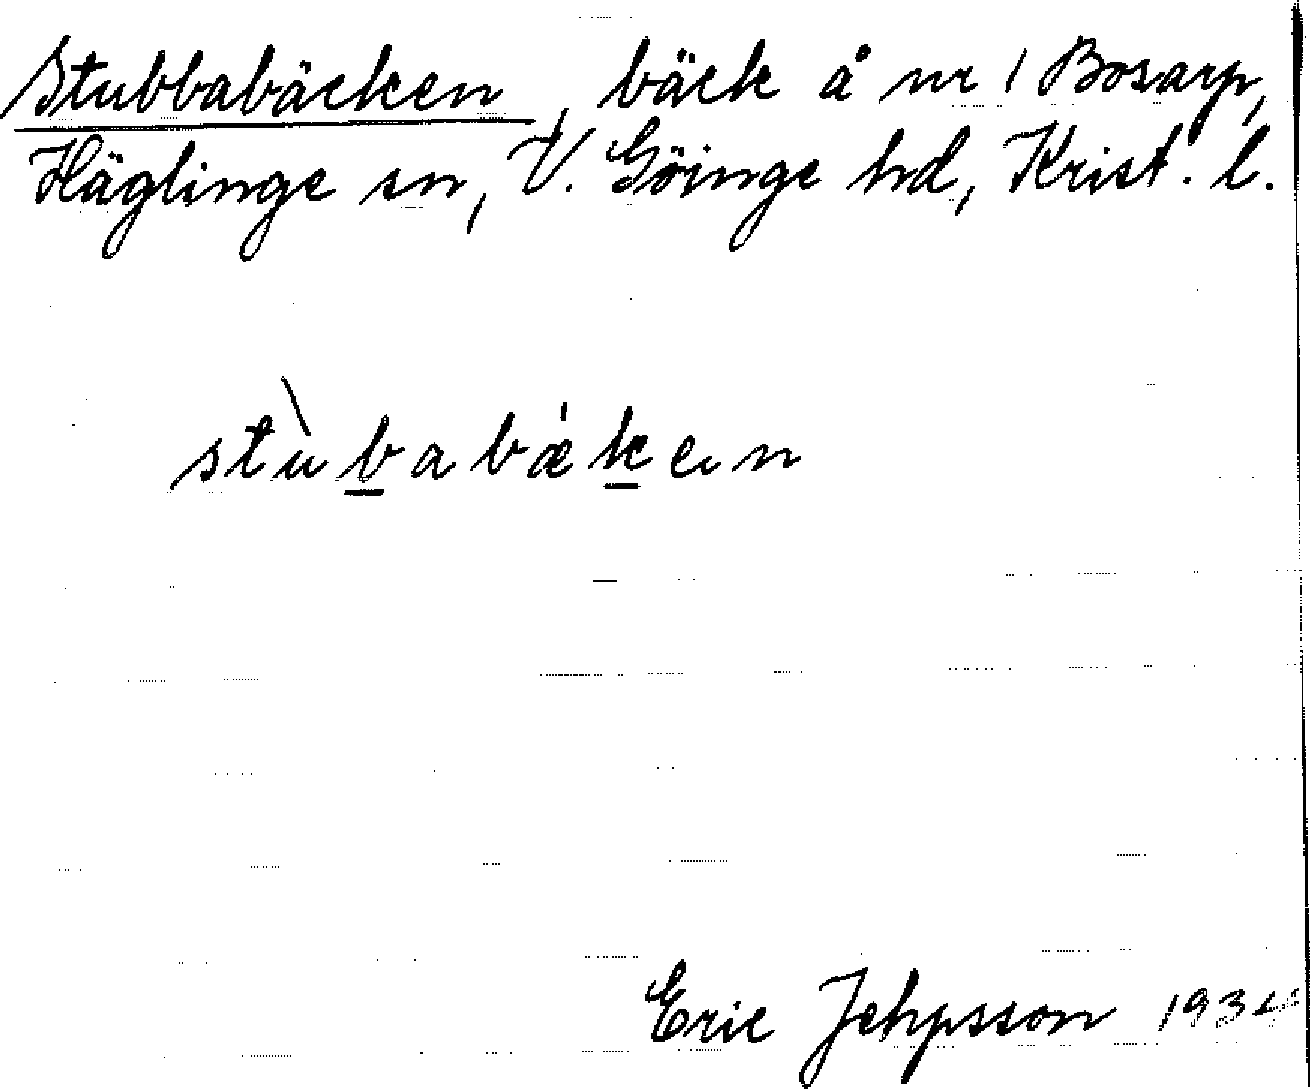 Stubbabäcken, bäck å nr 1 Bosarp,
Häglinge sn, V. Göinge hd, Krist. l.
stùbabæken
Eric Jehpsson 1934